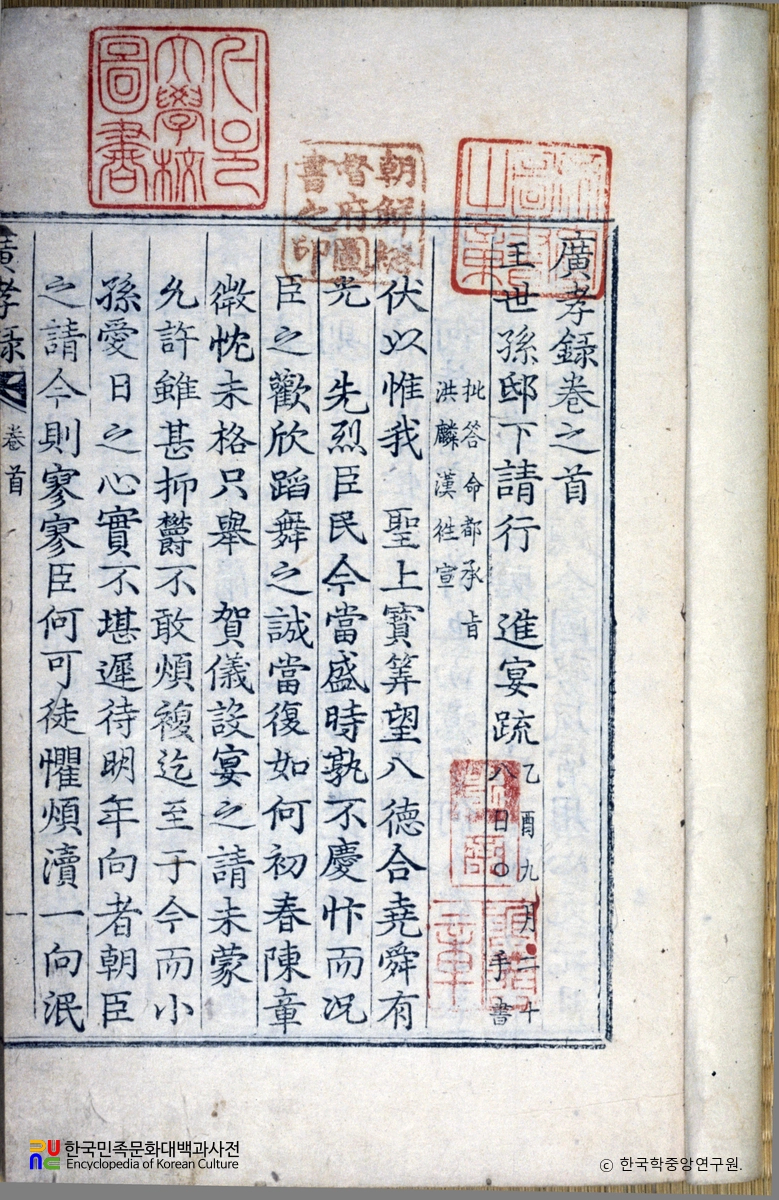 廣孝錄卷之首
王世孫邸下請行 進宴疏 乙酉九月二十
八日〇手書
批答 命都承旨
洪麟漢徃宣
伏以惟我 聖上寶筭望八德合堯舜有
光 先烈臣民今當盛時孰不慶忭而况
臣之歡欣蹈舞之誠當復如何初春陳章
微忱未格只舉 賀儀設宴之請未蒙
允許雖甚抑欝不敢煩複迄至于今而小
孫愛日之心實不堪遲待明年向者朝臣
之請今則寥寥臣何可徒懼煩瀆一向泯
廣孝錄
卷首
一
朝鮮總
督府圖
書之印
大學校
圖書
한국민족문화대백과사전
Encyclopedia of Korean Culture
ⓒ 한국학중앙연구원.